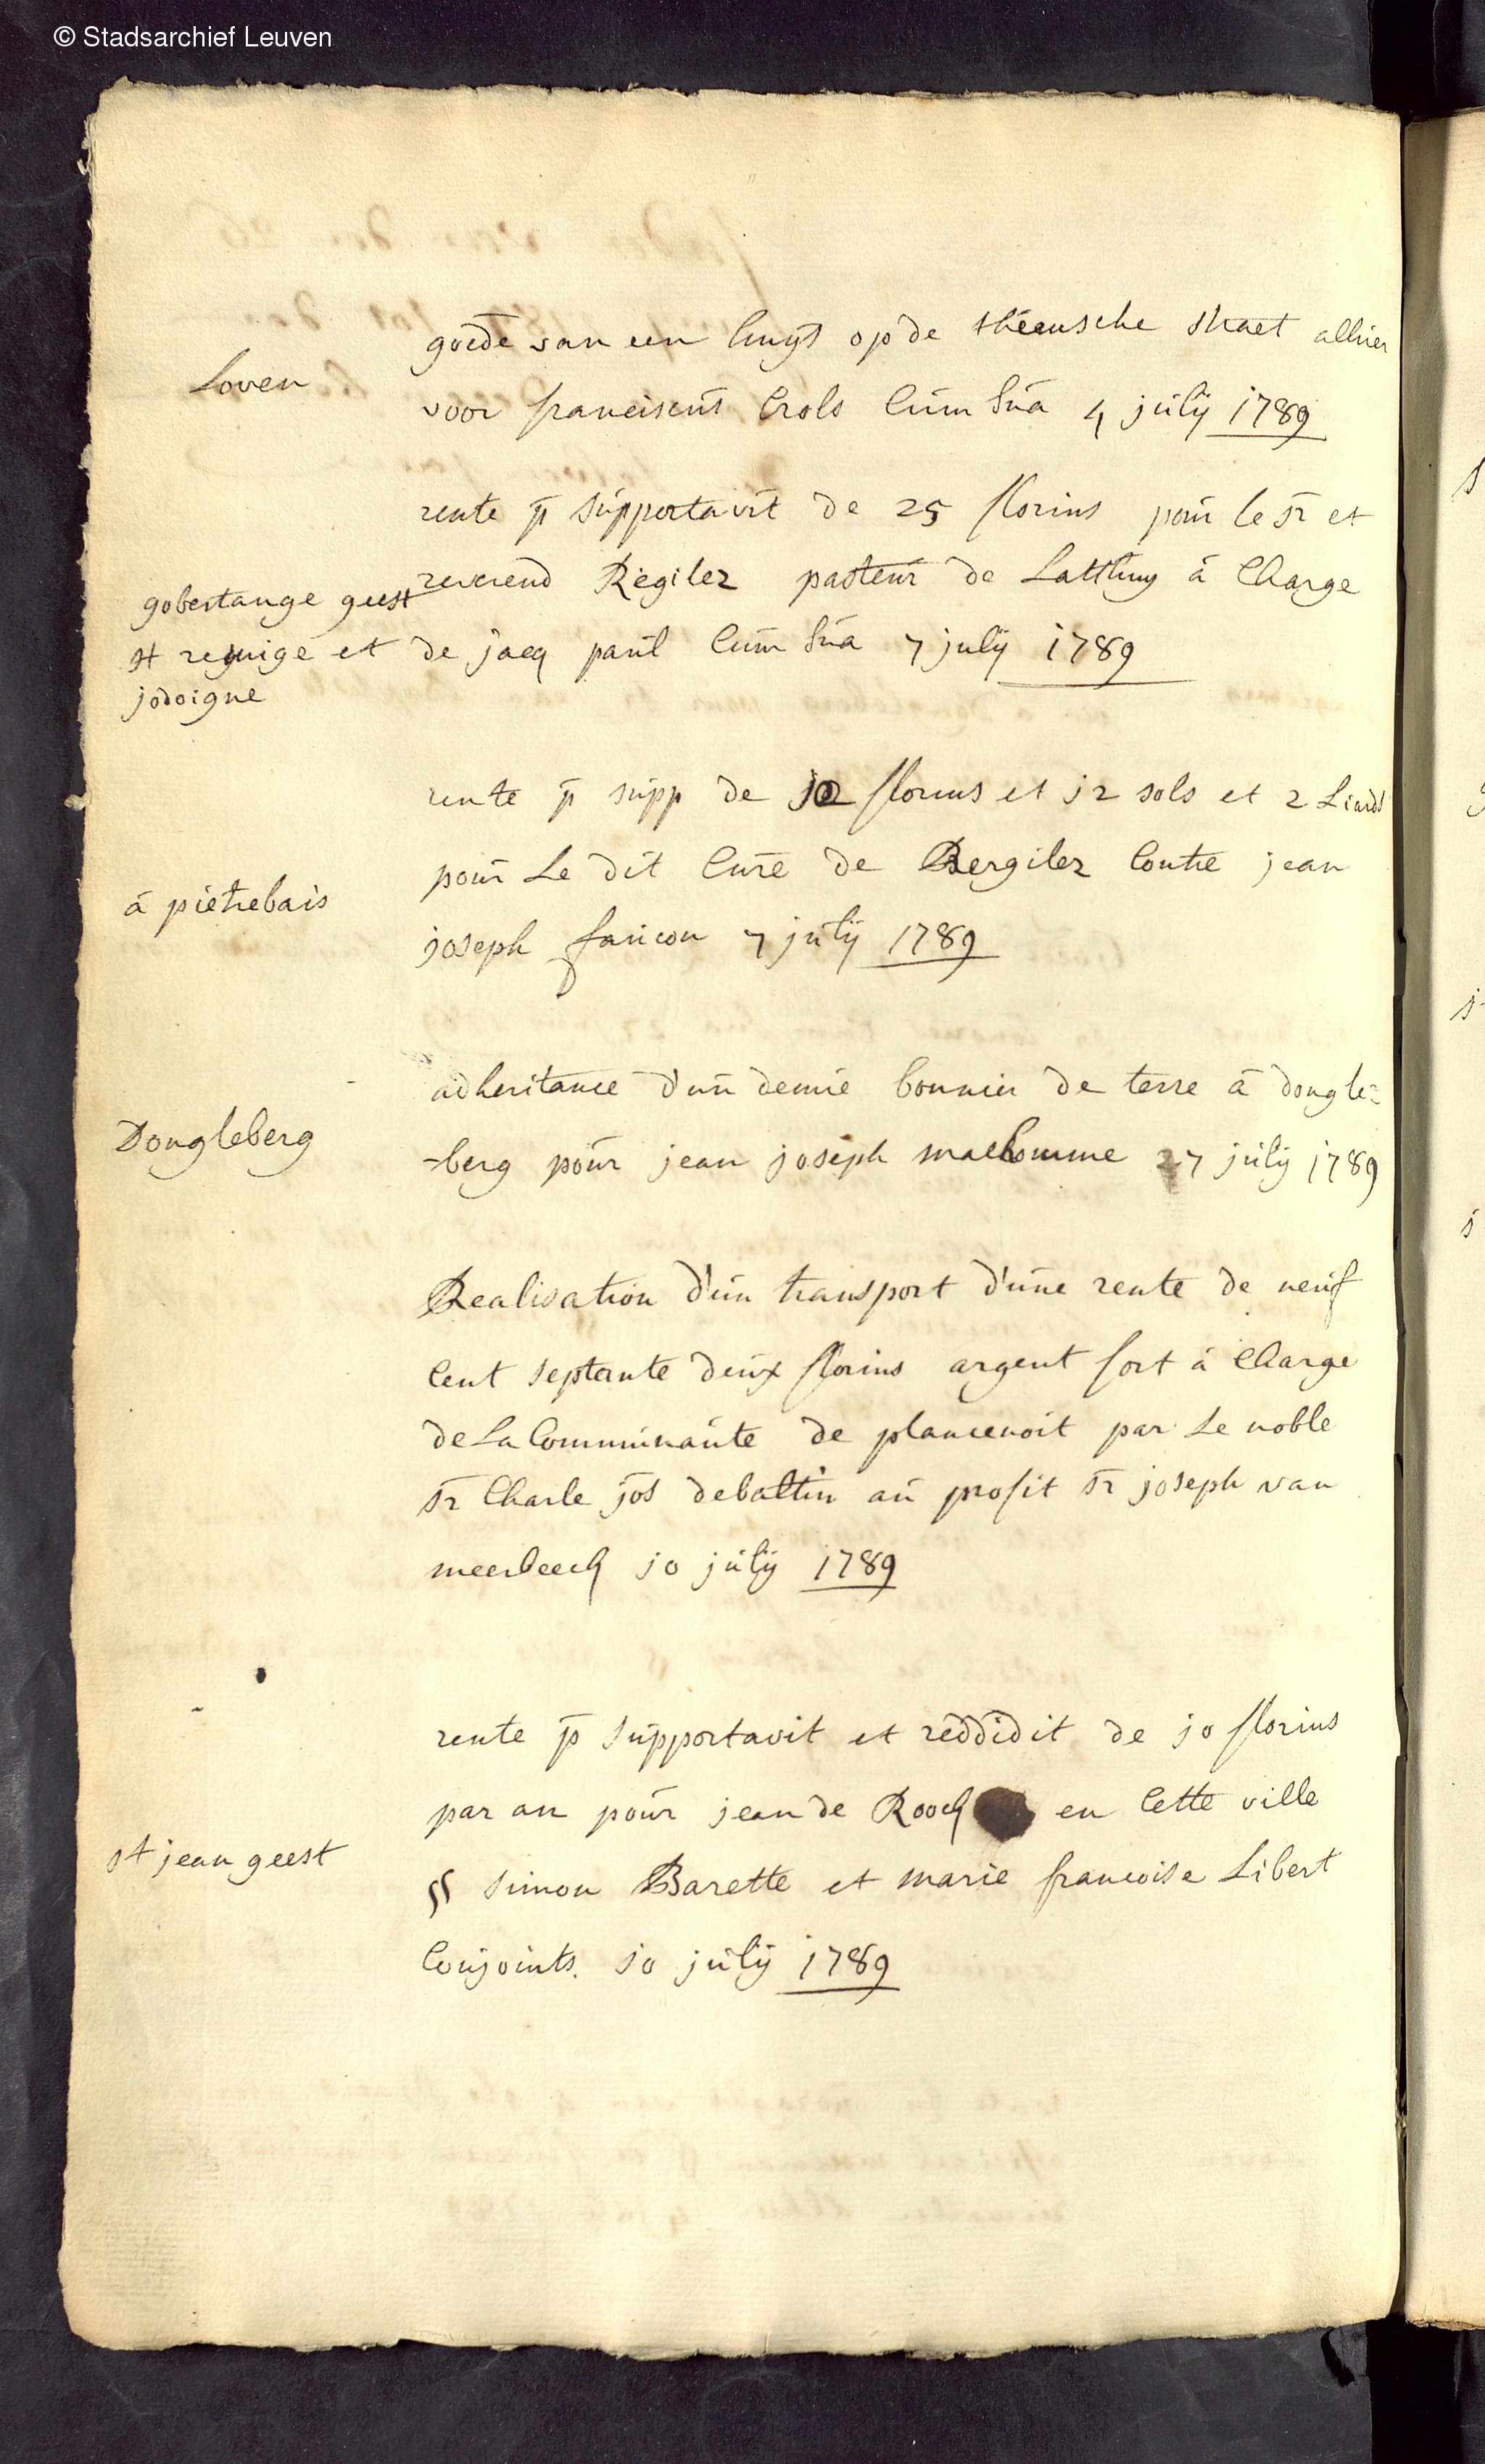 © Stadsarchief Leuven
Loven
goede van een huys op de thiensche straet alhier
voor franciscus Crols Cum Sua 4 julij 1789
gobertange geest
st remige et
jodoigne
rente p supportavit de 25 florins pour le sr et
reverend Regilez pasteur de Latthuy à Charge
de jacq paul Cum Sua 7 julij 1789
à pietrebais
rente p supp de 12 florins et j2 sols et 2 Liards
pour Le dit Curé de Bergilez Contre jean
joseph 7 julij 1789
Dongleberg
adheritance d'un demie bonnier de terre à dongle=
-berg pour jean joseph 27 julij j789
Realisation d'un transport d'une rente de neuf
Cent septante deux florins argent fort à Charge
de La Communauté de plancenoit par Le noble
sr Charle jos debattin au profit sr joseph van
meerbeeck j0 julij 1789
st jean geest
rente p supportavit et reddidit de j0 florins
par an pour jean de Roock en Cette ville
Simon Barette et marie francoise Libert
Conjoints. j0 julij 1789